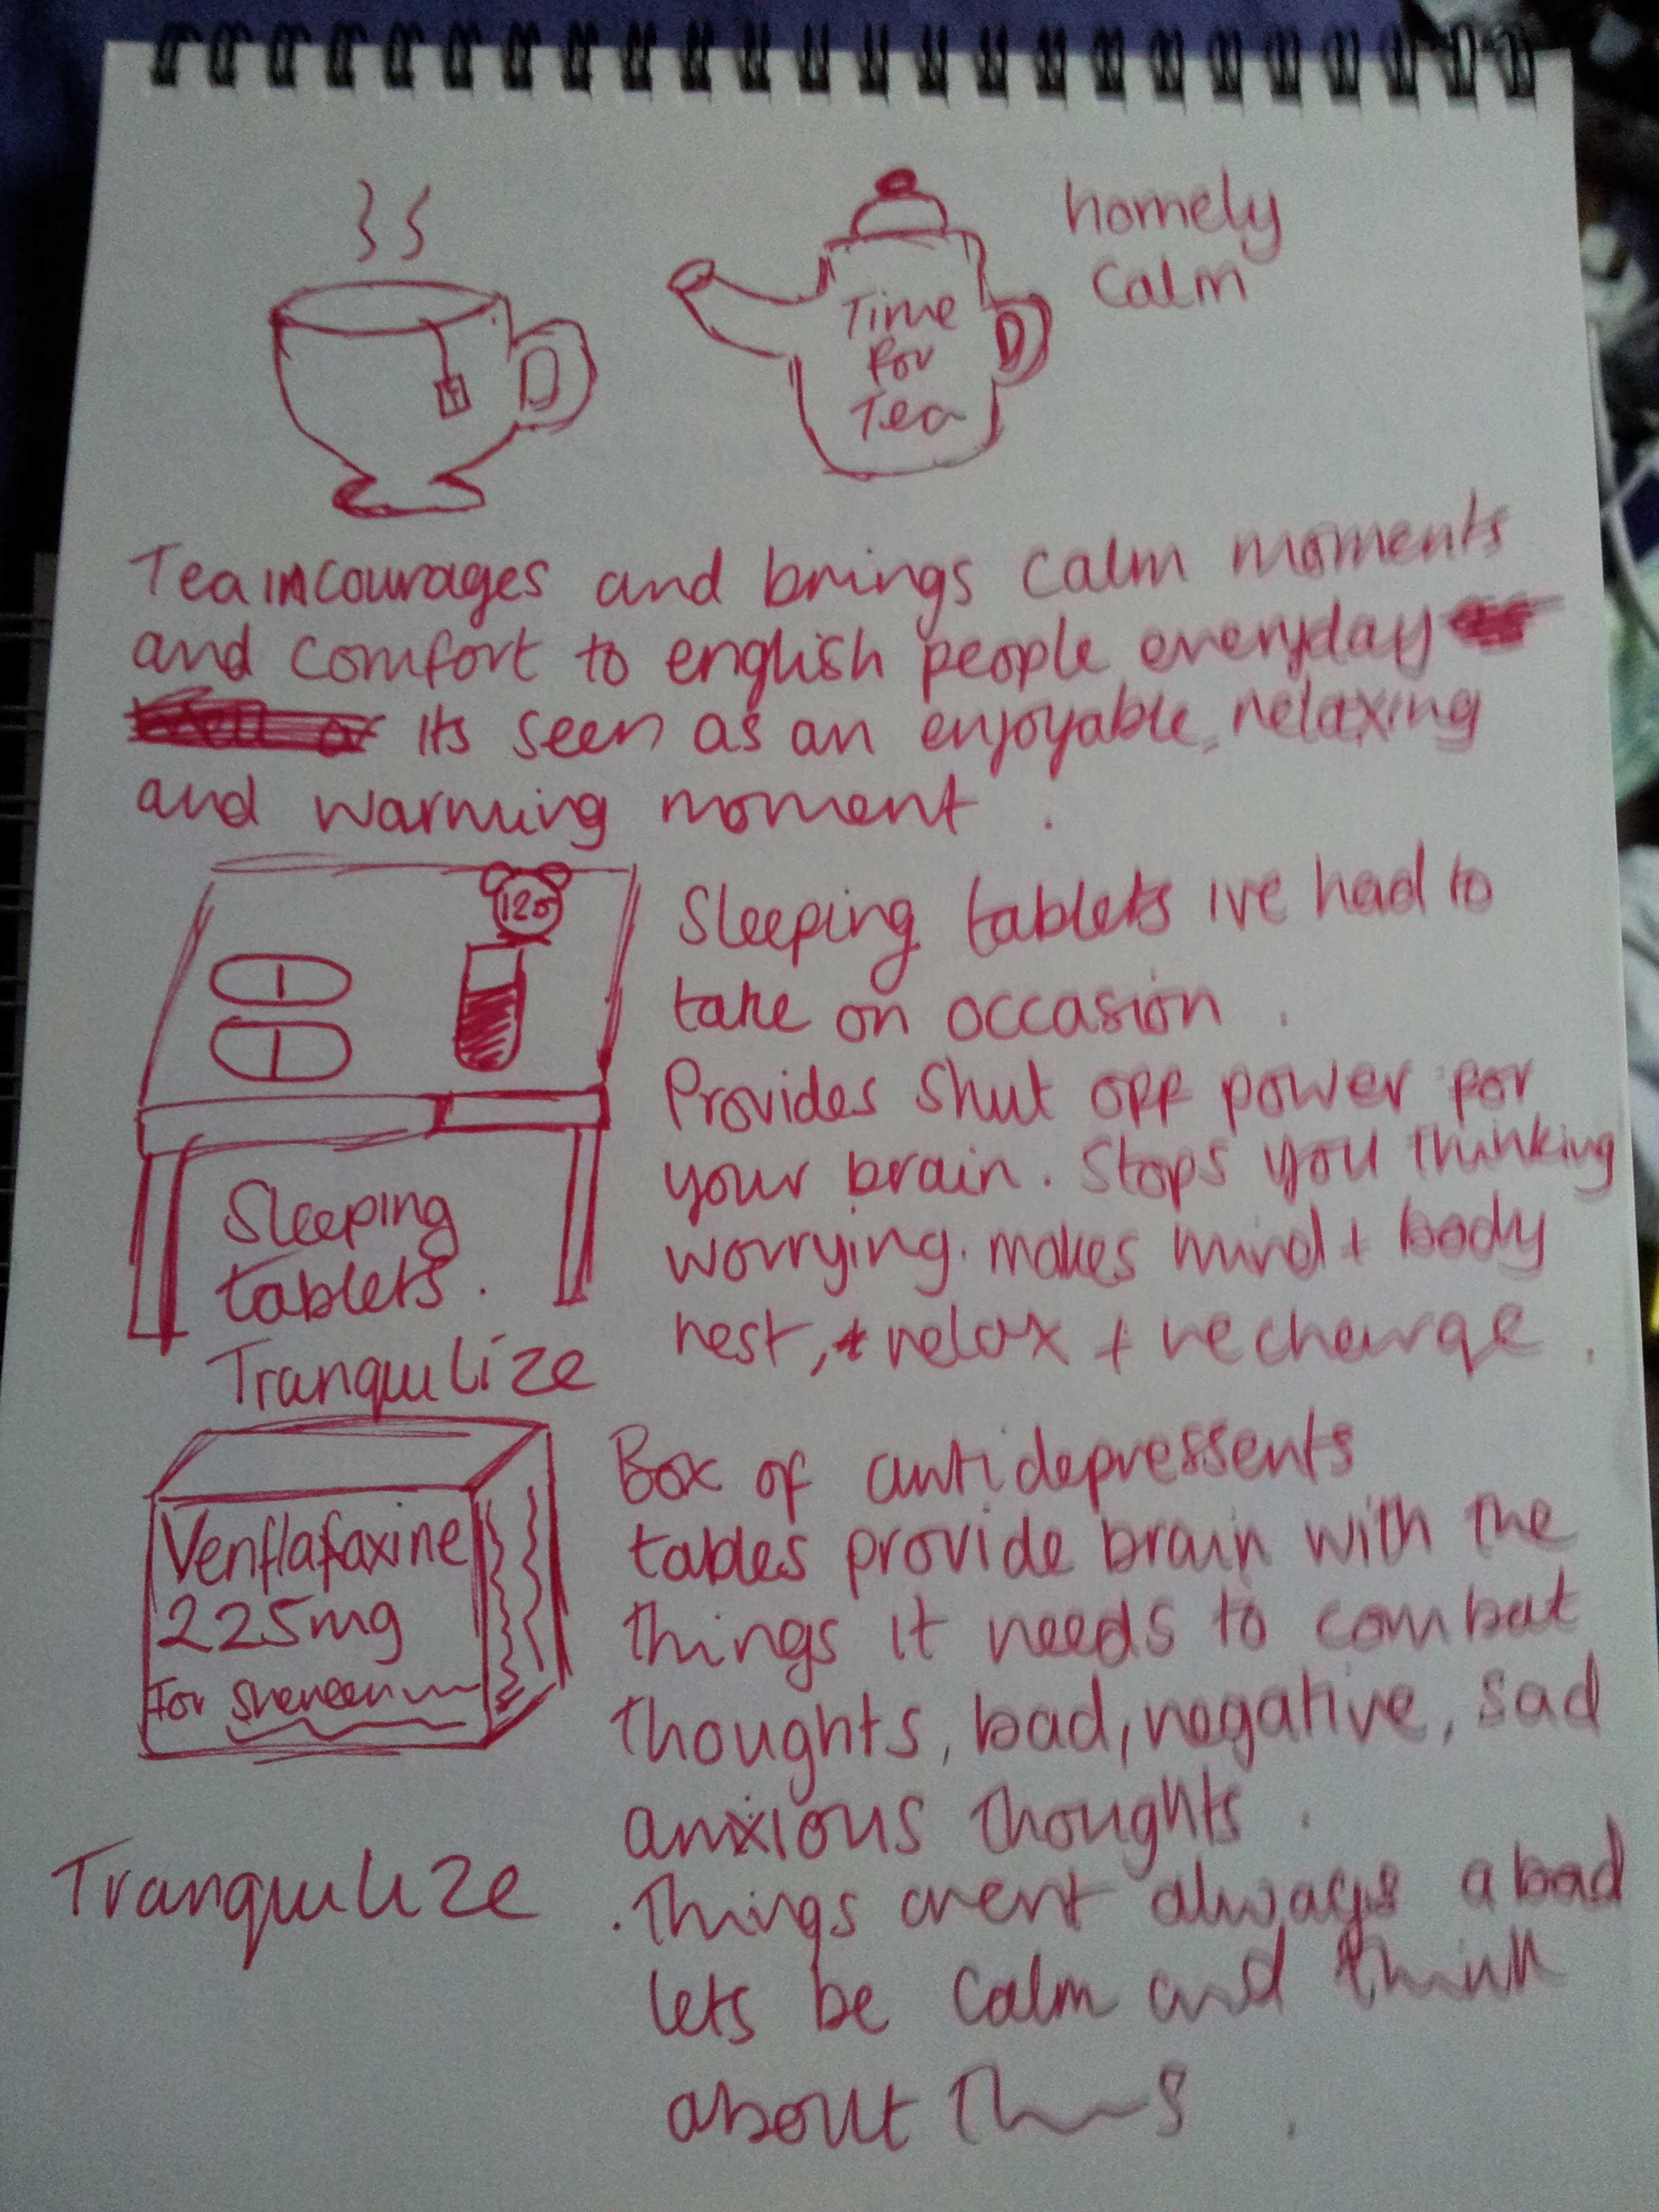 homely
calm
Time
for
Tea
Tea incourages and brings calm moments
and comfort to english people everyday
its seen as an enjoyable, relaxing
and warming moment.
Sleeping tablets ive had to
take on occasion.
Provides shut off power for
your brain. Stops you thinking
worrying. makes mind + body
rest, + relax + recharge.
120
Sleeping
tablets.
Tranquilize
Venflafaxine
225mg
For Shereen
Box of antidepressents
tables provide brain with the
things it needs to combat
thoughts, bad, negative, sad
anxious thoughts.
Tranquilize
. Things arent always a bad
lets be calm and think
about